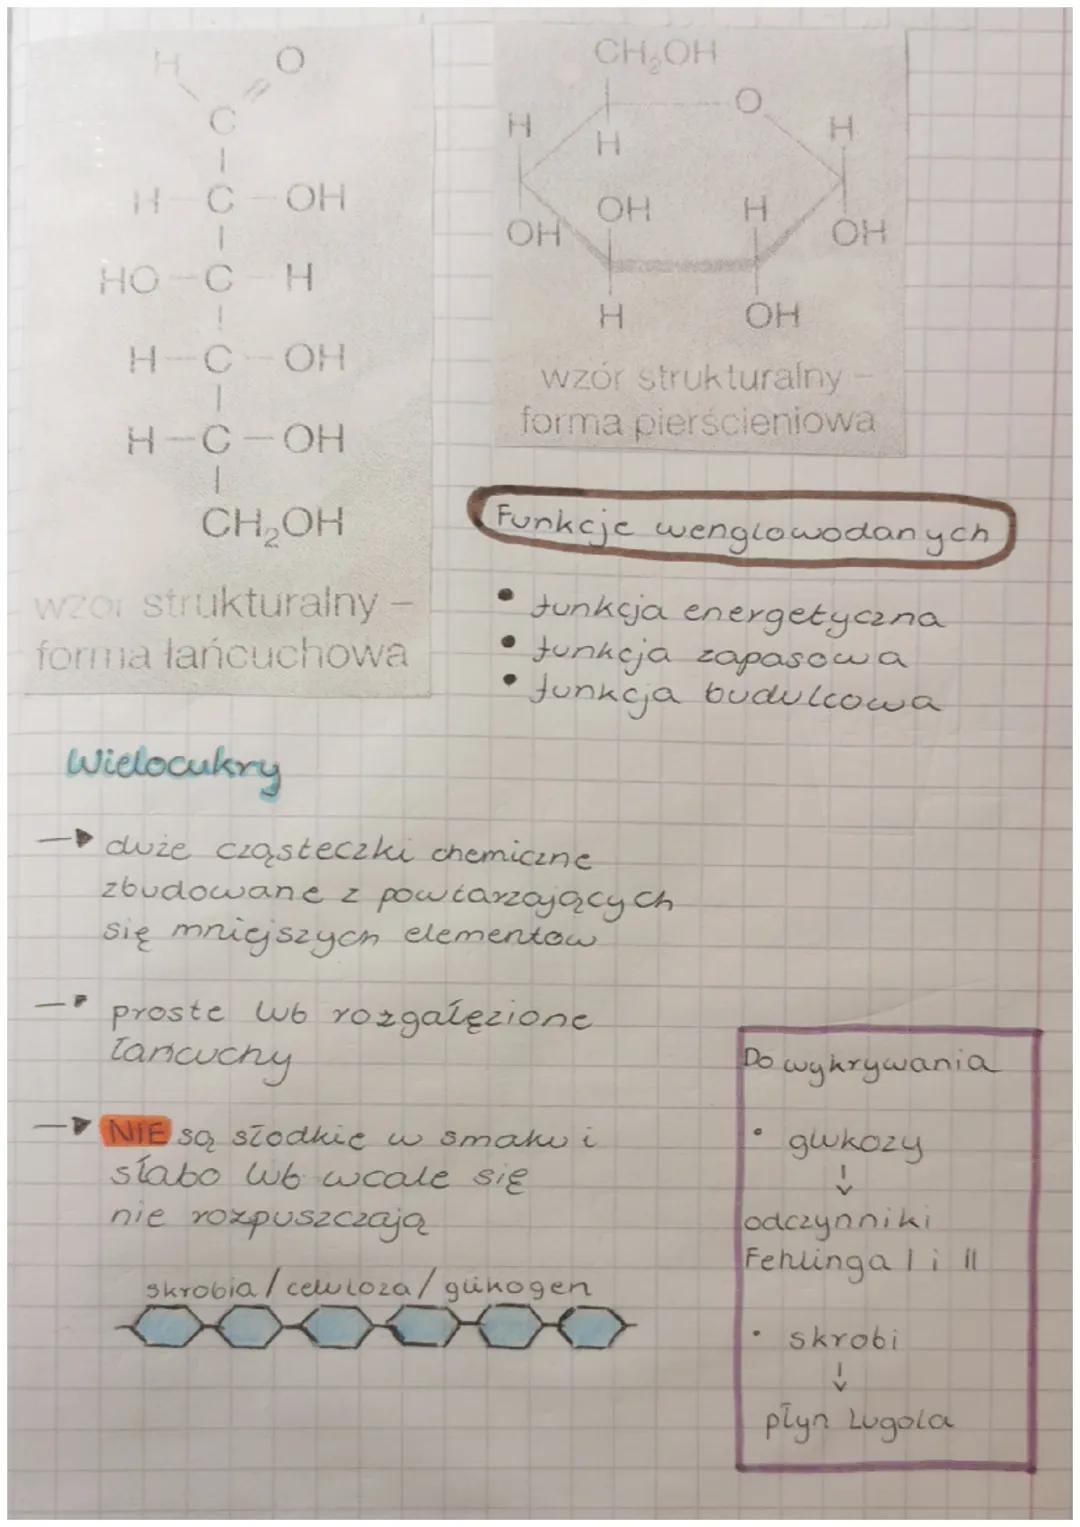 H O
C
H - C - OH
HO - C - H
H - C - OH
H - C - OH
CH₂OH
wzór strukturalny -
forma łańcuchowa
CH₂OH
H O H
H
OH H
OH OH
H OH
wzór strukturalny -
forma pierścieniowa
Funkcje wenglowodanych
• funkcja energetyczna
• funkcja zapasowa
• funkcja budulcowa
Wielocukry
→ duże cząsteczki chemiczne
zbudowane z powtarzających
się mniejszych elementów
→ proste lub rozgałęzione
łańcuchy
→ NIE są słodkie w smaku i
słabo lub wcale się
nie rozpuszczają
skrobia / celuloza / glikogen
Do wykrywania
• glukozy
↓
odczynniki
Fehlinga I i II
• skrobi
↓
płyn Lugola